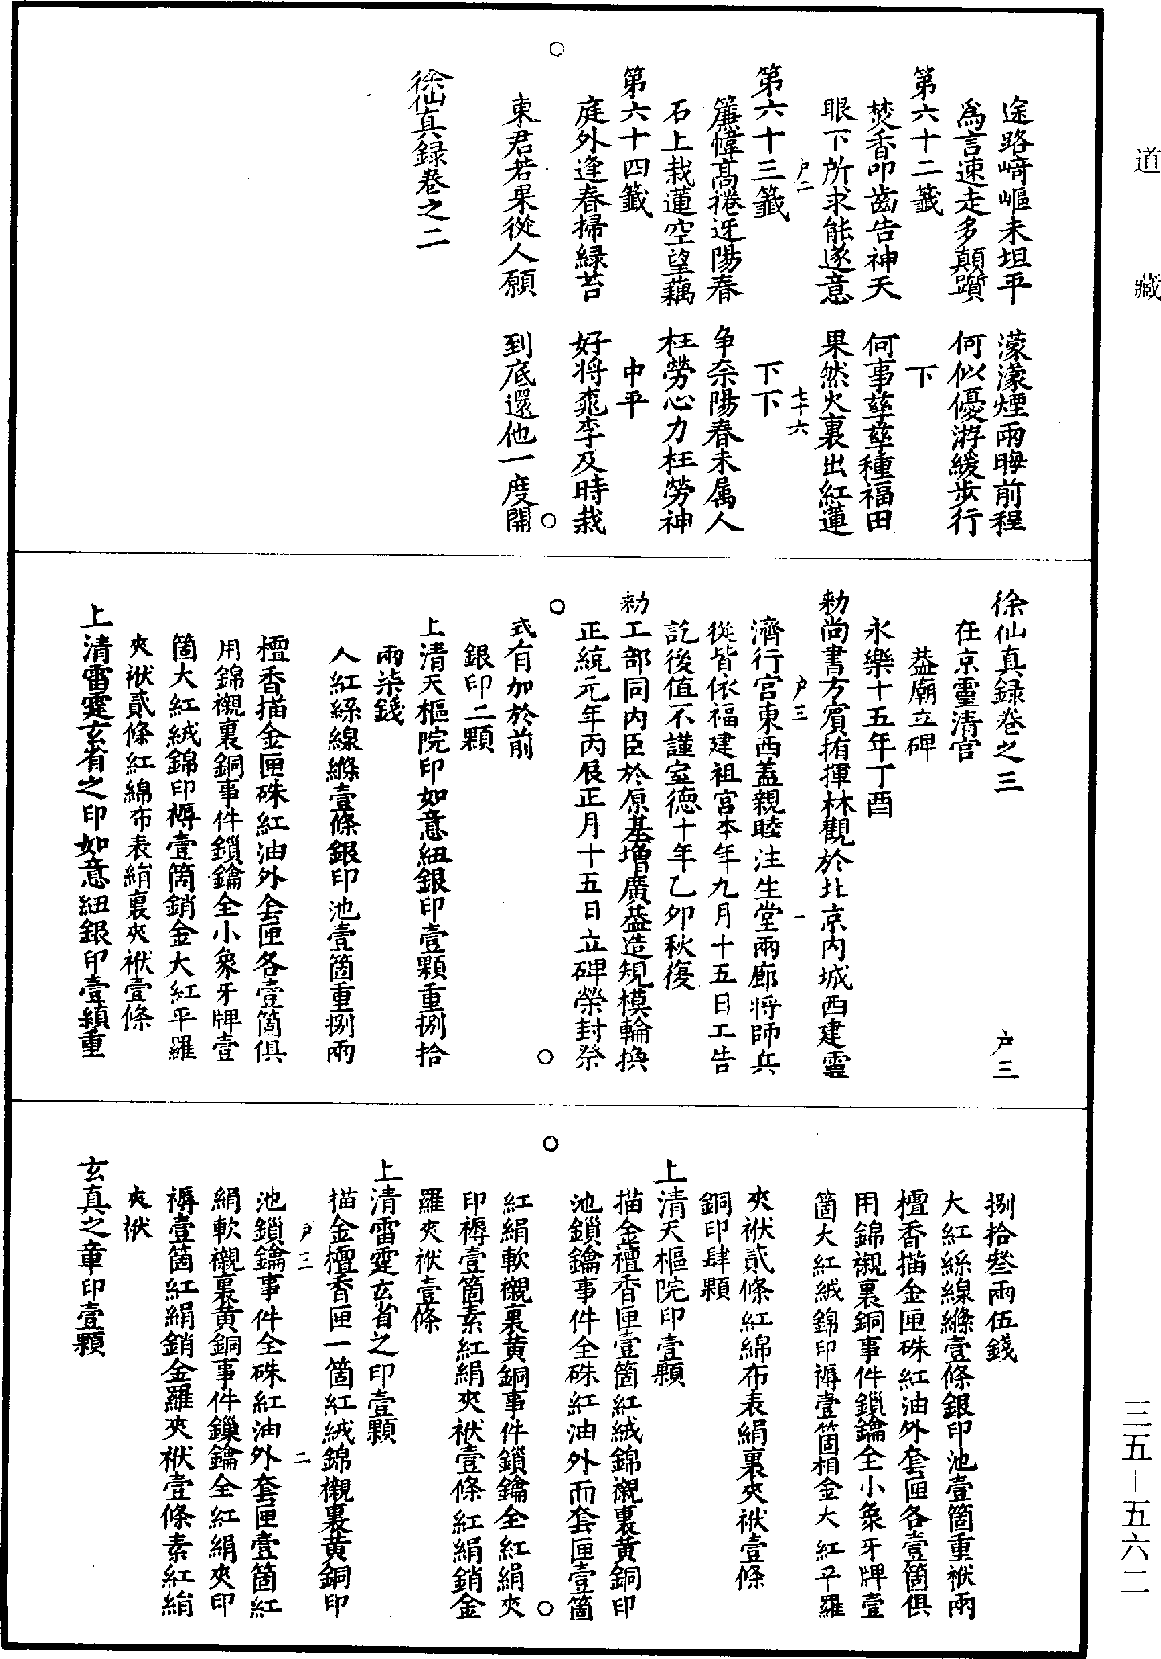 道藏
途路崎嶇未坦平　濛濛煙雨晦前程
爲言速走多顛躓　何似優游緩步行
第六十二籤　下
焚香叩齒告神天　何事孳孳種福田
眼下所求能遂意　果然火裏出紅蓮
户二　七十六
第六十三籤　下下
簾幃高捲迓陽春　争奈陽春未属人
石上栽蓮空望藕　枉勞心力枉勞神
第六十四籤　中平
庭外逢春掃緑苔　好將桃李及時栽
東君若果從人願　到底還他一度開
徐仙真録卷之二
徐仙真録卷之三　户三
在京靈清宫
蓋廟立碑
永樂十五年丁酉
勑尚書方賓指揮林觀於北京内城西建靈
户三　一
濟行宫東西蓋親睦注生堂兩廊將師兵
從皆依福建祖宫本年九月十五日工告
訖後值不謹宣德十年乙卯秋復
勑工部同内臣於原基增廣蓋造規模輪換
正統元年丙辰正月十五日立碑榮封祭
式有加於前
銀印二顆
上清天樞院印如意紐銀印壹顆重捌拾
兩柒錢
人紅絲線縧壹條銀印池壹箇重捌兩
檀香描金匣硃紅油外套匣各壹箇俱
用錦襯裏銅事件鎖鑰全小象牙牌壹
箇大紅絨錦印褥壹箇銷金大紅平羅
夾袱貳條紅綿布表絹裏夾袱壹條
上清雷霆玄省之印如意紐銀印壹顆重
捌拾叁兩伍錢
大紅絲線縧壹條銀印池壹箇重袱兩
檀香描金匣硃紅油外套匣各壹箇俱
用錦襯裏銅事件鎖鑰全小象牙牌壹
箇大紅絨錦印褥壹箇相金大紅平羅
夾袱貳條紅綿布表絹裏夾袱壹條
銅印肆顆
上清天樞院印壹顆
描金檀香匣壹箇紅絨錦襯裏黄銅印
池鎖鑰事件全硃紅油外而套匣壹箇
紅絹軟襯裏黄銅事件鎖鑰全紅絹夾
印褥壹箇素紅絹夾袱壹條紅絹銷金
羅夾袱壹條
上清雷霆玄省之印壹顆
描金檀香匣一箇紅絨錦襯裏黄銅印
户三　二
池鎖鑰事件全硃紅油外套匣壹箇紅
絹軟襯裏黄銅事件鏁鑰全紅絹夾印
褥壹箇紅絹銷金羅夾袱壹條素紅絹
夾袱
玄真之章印壹顆
三五—五六二